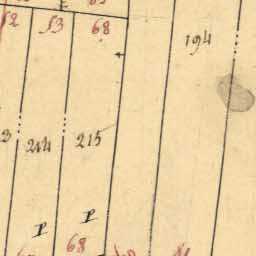 52 53 68
194
3 214 215
P P
68